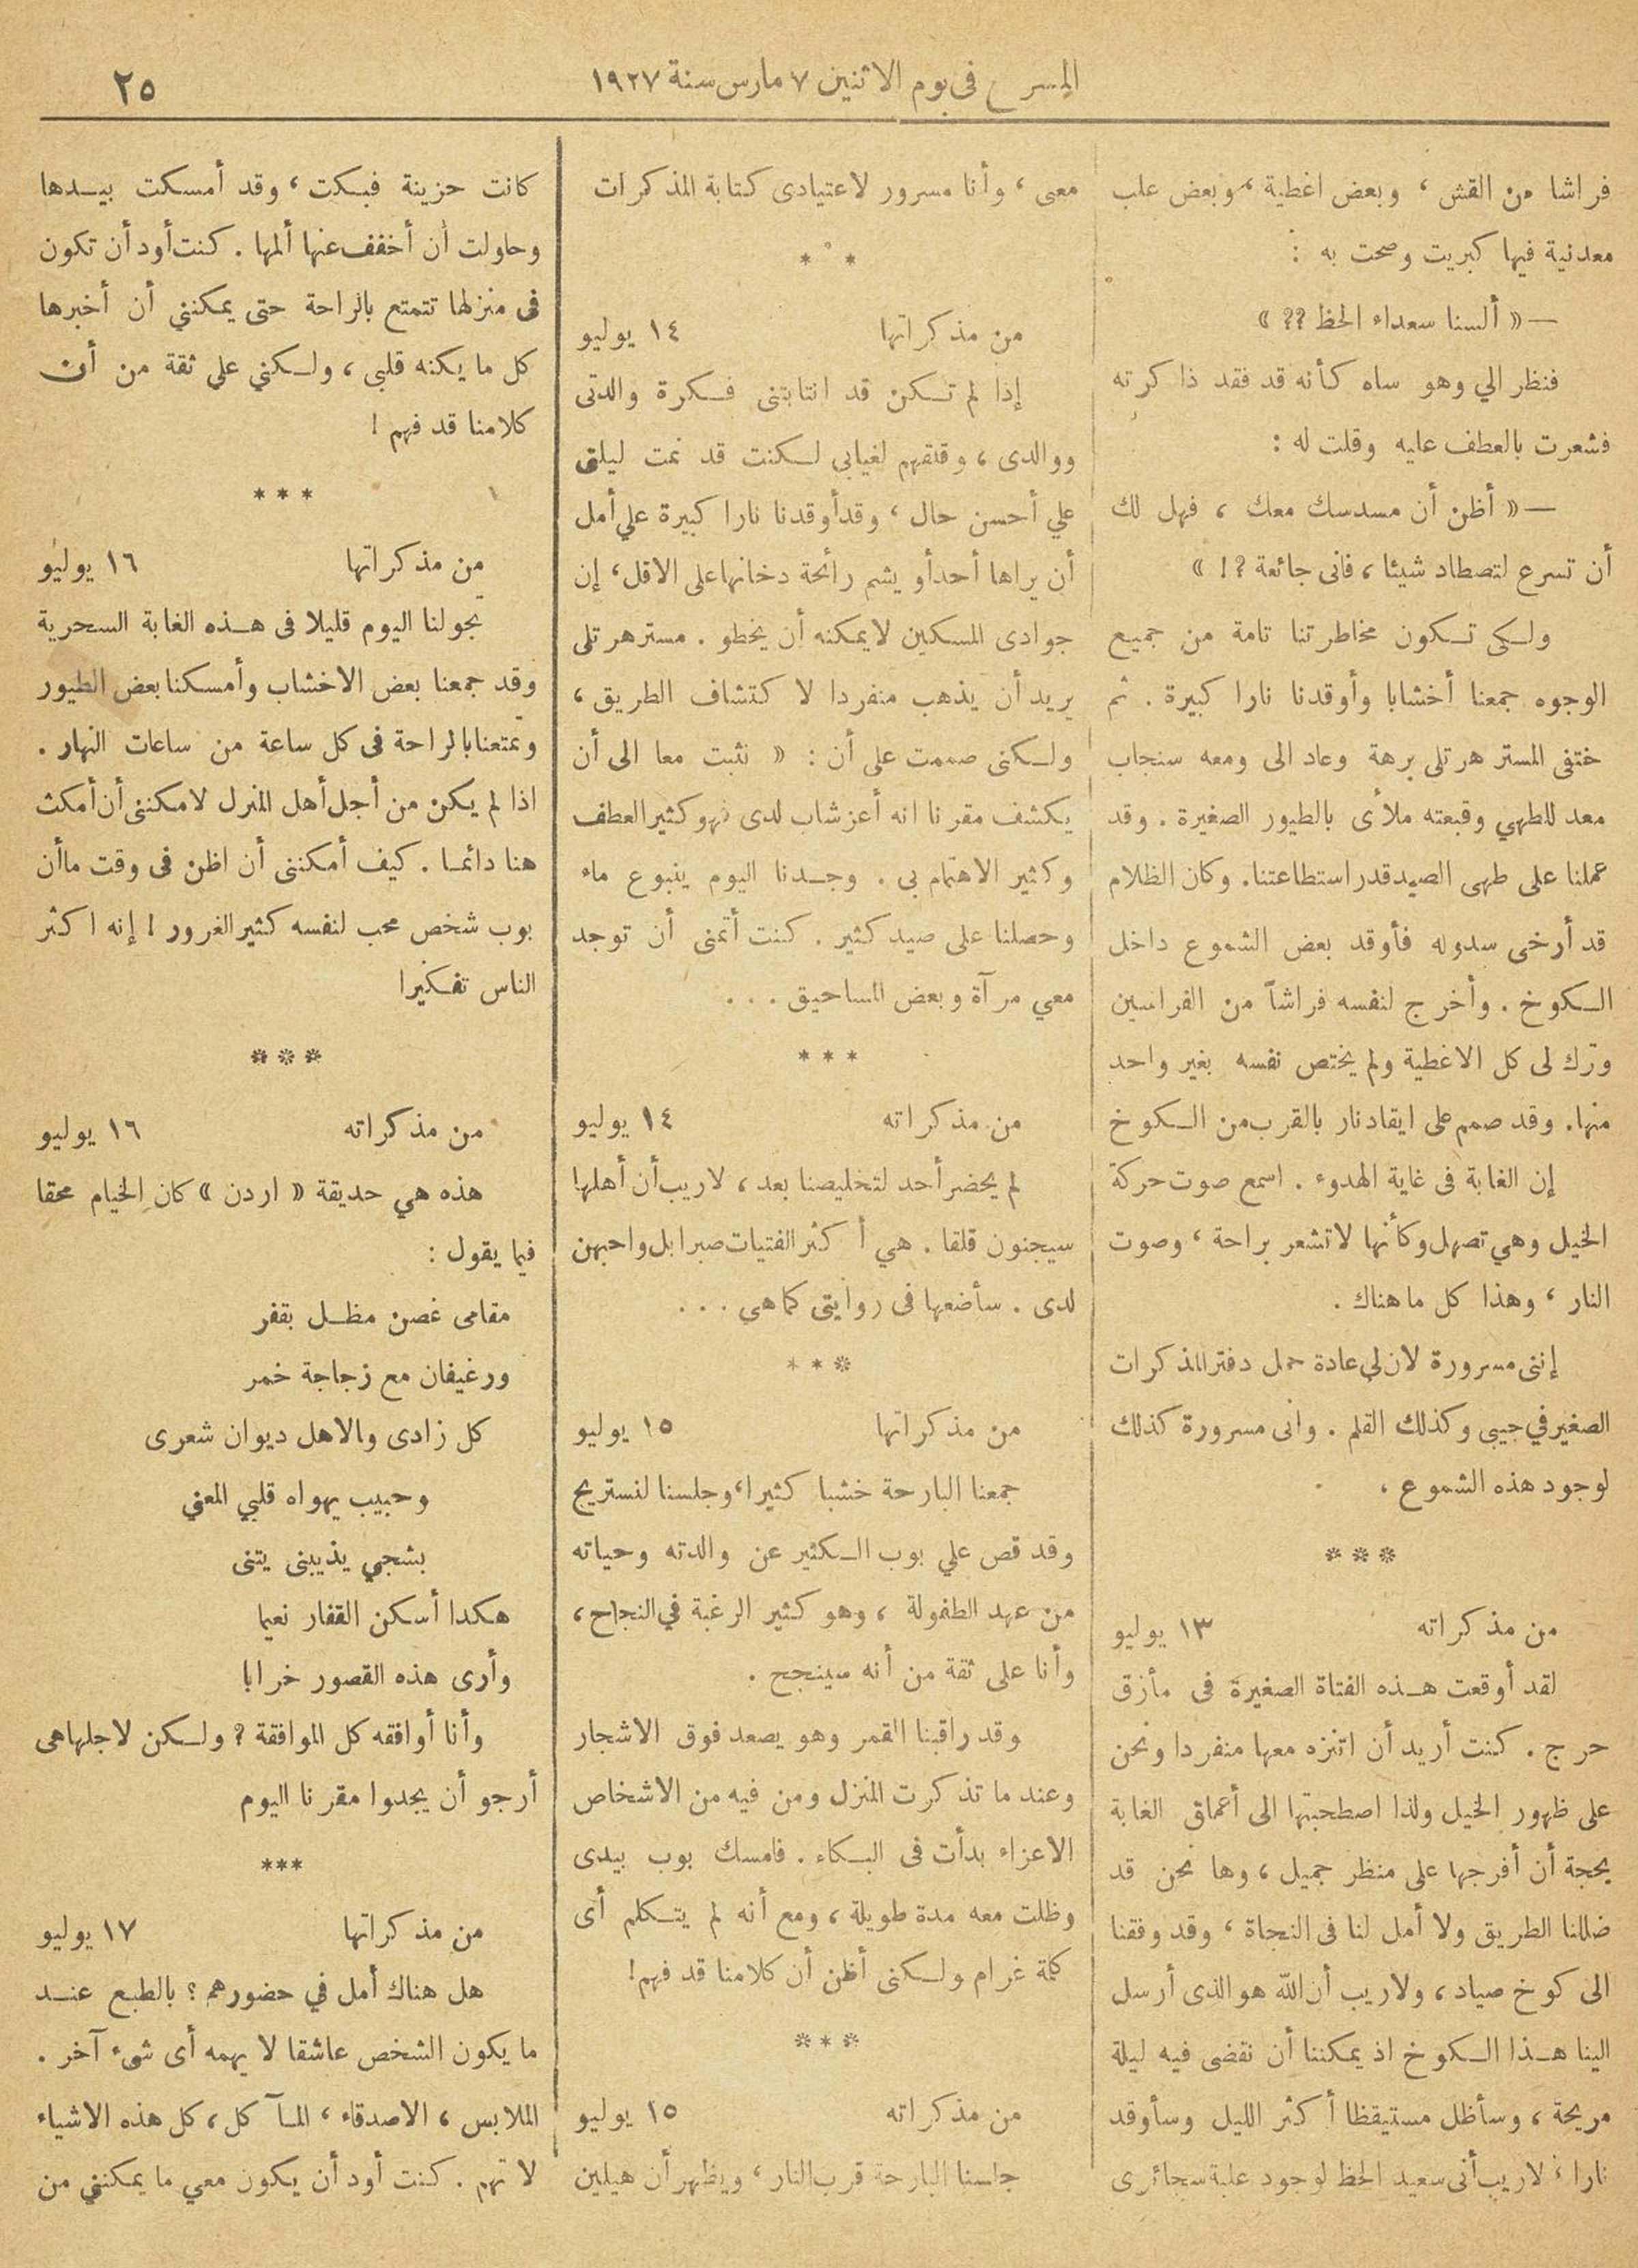 المسرح فى يوم الاثنين ٧ مارس سنة ١٩٢٧
٢٥
فراشا من القش ، وبعض اغطية ، وبعض علب
معدنية فيها كبريت وصحت به :
— « ألسنا سعداء الحظ ؟؟ »
فنظر الي وهو ساه كأنه قد فقد ذاكرته
فشعرت بالعطف عليه وقلت له :
— « أظن أن مسدسك معك ، فهل لك
أن تسرع لتصطاد شيئا ، فانى جائعة ؟! »
ولكى تكون مخاطرتنا تامة من جميع
الوجوه جمعنا أخشابا وأوقدنا نارا كبيرة . ثم
ختفى المستر هرتلى برهة وعاد الى ومعه سنجاب
معد للطهي وقبعته ملأى بالطيور الصغيرة . وقد
عملنا على طهى الصيد قدر استطاعتنا . وكان الظلام
قد أرخى سدوله فأوقد بعض الشموع داخل
الكوخ . وأخرج لنفسه فراشاً من الفراشين
وترك لى كل الاغطية ولم يختص نفسه بغير واحد
منها . وقد صمم على ايقاد نار بالقرب من الكوخ
إن الغابة فى غاية الهدوء . اسمع صوت حركة
الخيل وهي تصهل وكأنها لا تشعر براحة ، وصوت
النار ، وهذا كل ما هناك .
إننى مسرورة لان لي عادة حمل دفتر المذكرات
الصغير في جيبى وكذلك القلم . وانى مسرورة كذلك
لوجود هذه الشموع ،
***
من مذكراته ١٣ يوليو
لقد أوقعت هذه الفتاة الصغيرة فى مأزق
حرج . كنت أريد أن اتنزه معها منفردا ونحن
على ظهور الخيل ولذا اصطحبتها الى أعماق الغابة
بحجة أن أفرجها على منظر جميل ، وها نحن قد
ضللنا الطريق ولا أمل لنا فى النجاة ، وقد وفقنا
الى كوخ صياد ، ولاريب أن الله هو الذى أرسل
الينا هذا الكوخ اذ يمكننا أن نقضى فيه ليلة
مريحة ، وسأظل مستيقظا أكثر الليل وسأوقد
نارا ، لاريب أنى سعيد الحظ لوجود علبة سجائرى
معى ، وأنا مسرور لاعتيادى كتابة المذكرات
* * *
من مذكراتها ١٤ يوليو
إذا لم تكن قد انتابتنى فكرة والدتى
ووالدى ، وقلقهم لغيابى لكنت قد نمت ليلتى
علي أحسن حال ، وقد أوقدنا نارا كبيرة علي أمل
أن يراها أحد أو يشم رائحة دخانها على الاقل ، إن
جوادى المسكين لا يمكنه أن يخطو . مستر هرتلى
يريد أن يذهب منفردا لا كتشاف الطريق ،
ولكنى صممت على أن : « نثبت معا الى أن
يكشف مقرنا انه أعز شاب لدى فهو كثير العطف
وكثير الاهتمام بى . وجدنا اليوم ينبوع ماء
وحصلنا على صيد كثير . كنت أتمنى أن توجد
معي مرآة وبعض المساحيق . . .
* * *
من مذكراته ١٤ يوليو
لم يحضر أحد لتخليصنا بعد ، لاريب أن أهلها
سيجنون قلقا . هي أكثر الفتيات صبرا بل واحبهن
لدى . سأضعها فى روايتى كما هي . . .
***
من مذكراتها ١٥ يوليو
جمعنا البارحة خشبا كثيرا ، وجلسنا لنستريح
وقد قص علي بوب الكثير عن والدته وحياته
من عهد الطفولة ، وهو كثير الرغبة في النجاح ،
وأنا على ثقة من أنه سينجح .
وقد راقبنا القمر وهو يصعد فوق الاشجار
وعند ما تذكرت المنزل ومن فيه من الاشخاص
الاعزاء بدأت فى البكاء . فامسك بوب بيدى
وظلت معه مدة طويلة ، ومع أنه لم يتكلم أى
كلمة غرام ولكنى أظن أن كلامنا قد فهم !
***
من مذكراته ١٥ يوليو
جلسنا البارحة قرب النار ، ويظهر أن هيلين
كانت حزينة فبكت ، وقد أمسكت بيدها
وحاولت أن أخفف عنها ألمها . كنت أود أن تكون
فى منزلها تتمتع بالراحة حتى يمكننى أن أخبرها
كل ما يكنه قلبى ، ولكني على ثقة من أن
كلامنا قد فهم !
* * *
من مذكراتها ١٦ يوليو
تجولنا اليوم قليلا فى هذه الغابة السحرية
وقد جمعنا بعض الاخشاب وأمسكنا بعض الطيور
وتمتعنا بالراحة فى كل ساعة من ساعات النهار .
اذا لم يكن من أجل أهل المنزل لامكننى أن أمكث
هنا دائما . كيف أمكننى أن اظن فى وقت ما أن
بوب شخص محب لنفسه كثير الغرور ! إنه اكثر
الناس تفكيرا
***
من مذكراته ١٦ يوليو
هذه هي حديقة « اردن » كان الخيام محقا
فيما يقول :
مقامى غصن مظل بقفر
ورغيفان مع زجاجة خمر
كل زادى والاهل ديوان شعرى
وحبيب يهواه قلبي المعنى
بشجي يذيبنى يتنى
هكدا أسكن القفار نعيما
وأرى هذه القصور خرابا
وأنا أوافقه كل الموافقة ؟ ولكن لاجلها هى
أرجو أن يجدوا مقرنا اليوم
***
من مذكراتها ١٧ يوليو
هل هناك أمل في حضورهم ؟ بالطبع عند
ما يكون الشخص عاشقا لا يهمه أى شىء آخر .
الملابس ، الاصدقاء ، المآكل ، كل هذه الاشياء
لا تهم . كنت أود أن يكون معي ما يمكنني من